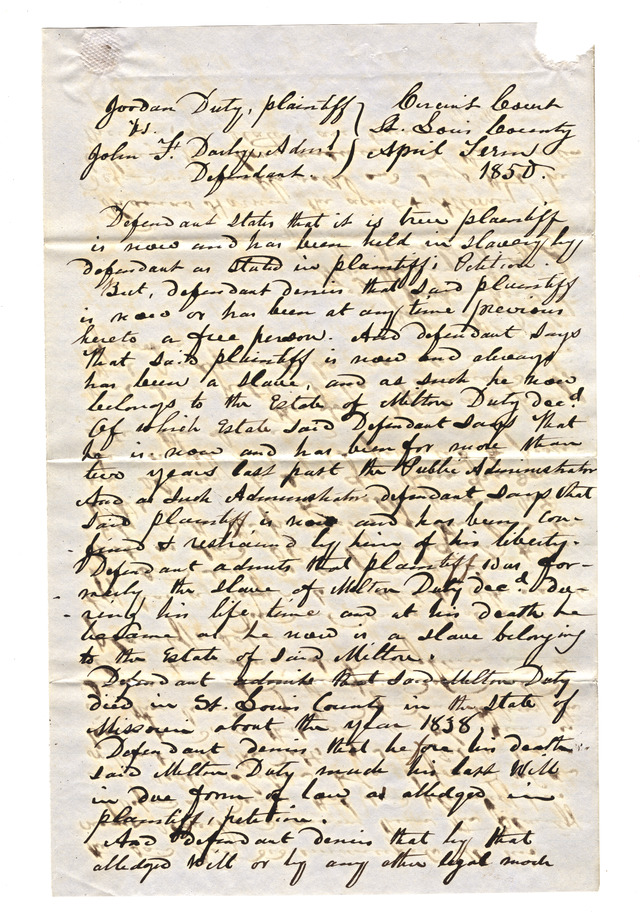 Jordan Duty, plaintiff } Circuit Court
vs. St. Louis County
John F. Darby, Admr } April Term
Defendant 1850.
Defendant states that it is true plaintiff
is now and has been held in slavery by
defendant as stated in plaintiff's Petition.
But, defendant denies that said plaintiff
is now or has been at any time previous
hereto a free person. And defendant says
that said plaintiff is now and always
has been a slave, and as such he now
belongs to the Estate of Milton Duty decd.
Of which Estate said Defendant says that
he is now and has been for more than
two years last past the Public Administrator
And as such Administrator defendant says that
said plaintiff is now and has been con-
fined & restrained by him of his liberty.
Defendant admits that plaintiff was for-
merly the slave of Milton Duty decd. du-
ring his life time and at his death he
became as he now is a slave belonging
to the Estate of said Milton.
Defendant admits that said Milton Duty
died in St. Louis County in the State of
Missouri about the year 1838.
Defendant denies that before his death
said Milton Duty made his last Will
in due form of law as alledged in
plaintiff's petition.
And defendant denies that by that
alledged Will or by any other legal mode